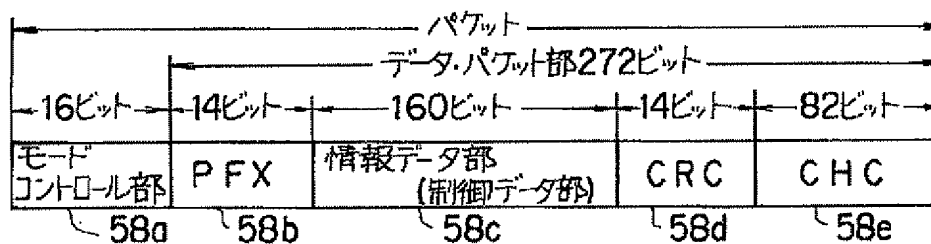 パケット
データ・パケット部272ビット
16ビット 14ビット 160ビット 14ビット 82ビット
モード
コントロール部
PFX
情報データ部
(制御データ部)
CRC
CHC
58a 58b 58c 58d 58e